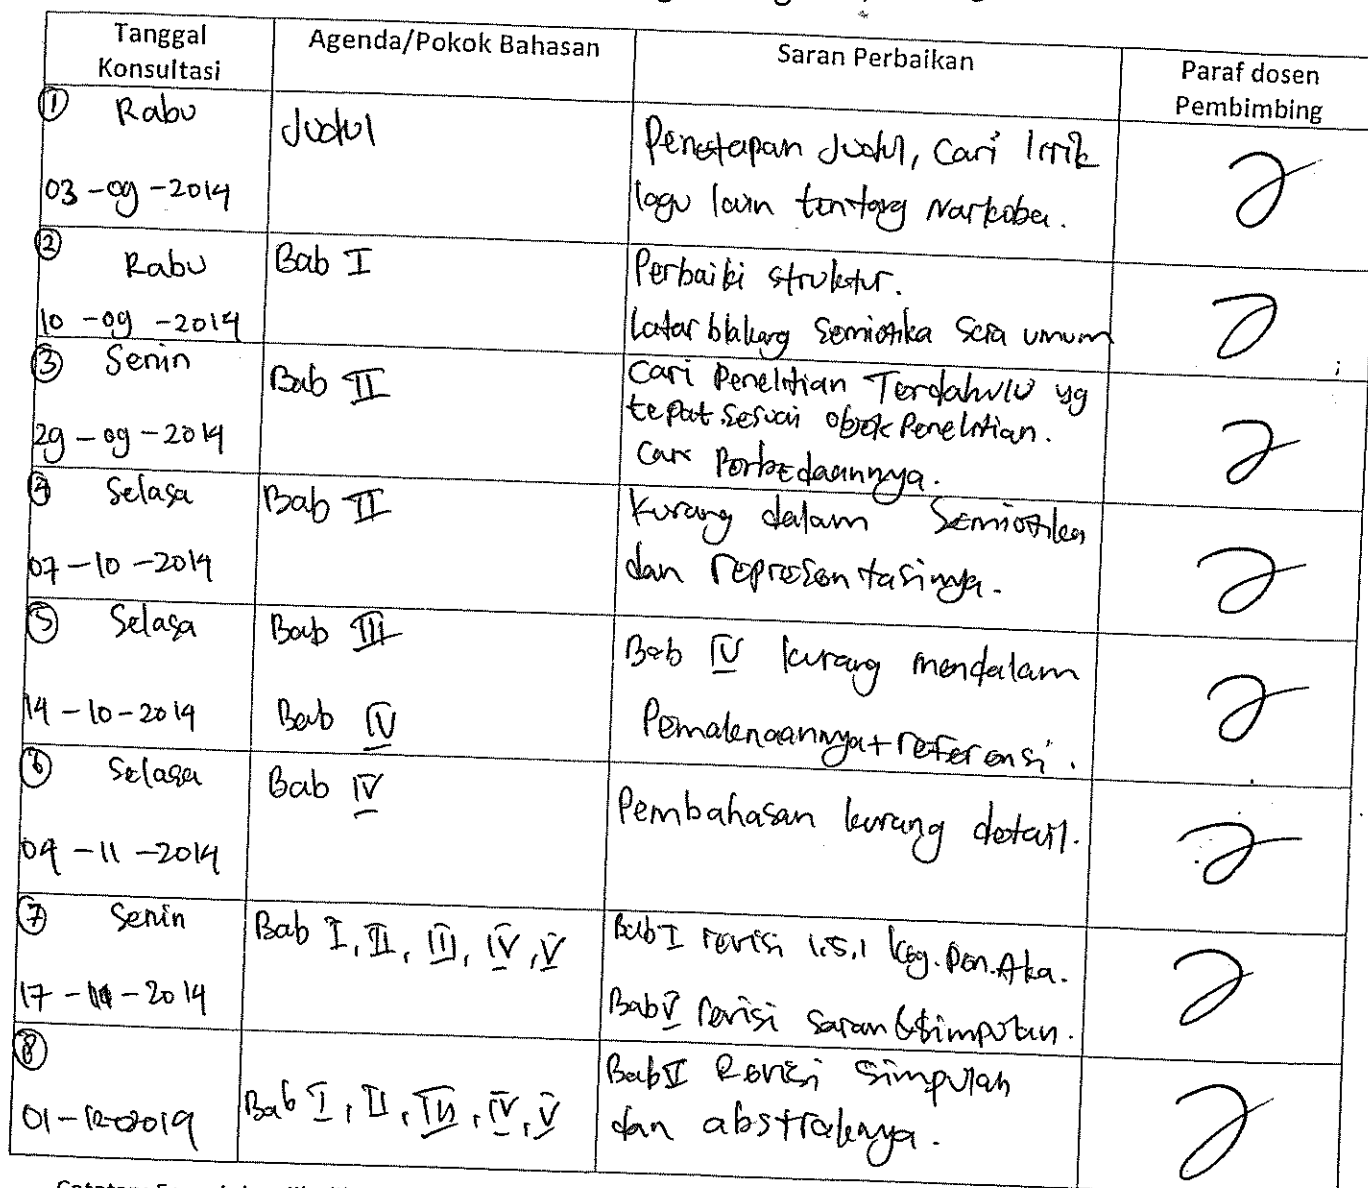 Tanggal Konsultasi | Agenda/Pokok Bahasan | Saran Perbaikan | Paraf dosen Pembimbing
① Rabu
03-09-2014
Judul
Penetapan Judul, Cari lirik
lagu lain tentang Narkoba.
② Rabu
10-09-2014
Bab I
Perbaiki struktur.
Latar blakang Semiotika umum
③ Senin
29-09-2014
Bab II
Cari Penelitian Terdahulu yg
tepat sesuai obek Penelitian.
Cari Perbedaannya.
④ Selasa
07-10-2014
Bab II
Kurang dalam Semiotika
dan representasinya.
⑤ Selasa
14-10-2014
Bab III
Bab IV
Bab IV kurang mendalam
Pemaknaannya + referensi.
⑥ Selasa
04-11-2014
Bab IV
Pembahasan kurang detail.
⑦ Senin
17-11-2014
Bab I, II, III, IV, V
Bab I revisi 1.5.1 Keg. Pen. Aka.
Bab V revisi saran & simpulan.
⑧
01-12-2014
Bab I, II, III, IV, V
Revisi simpulan
dan abstraknya.